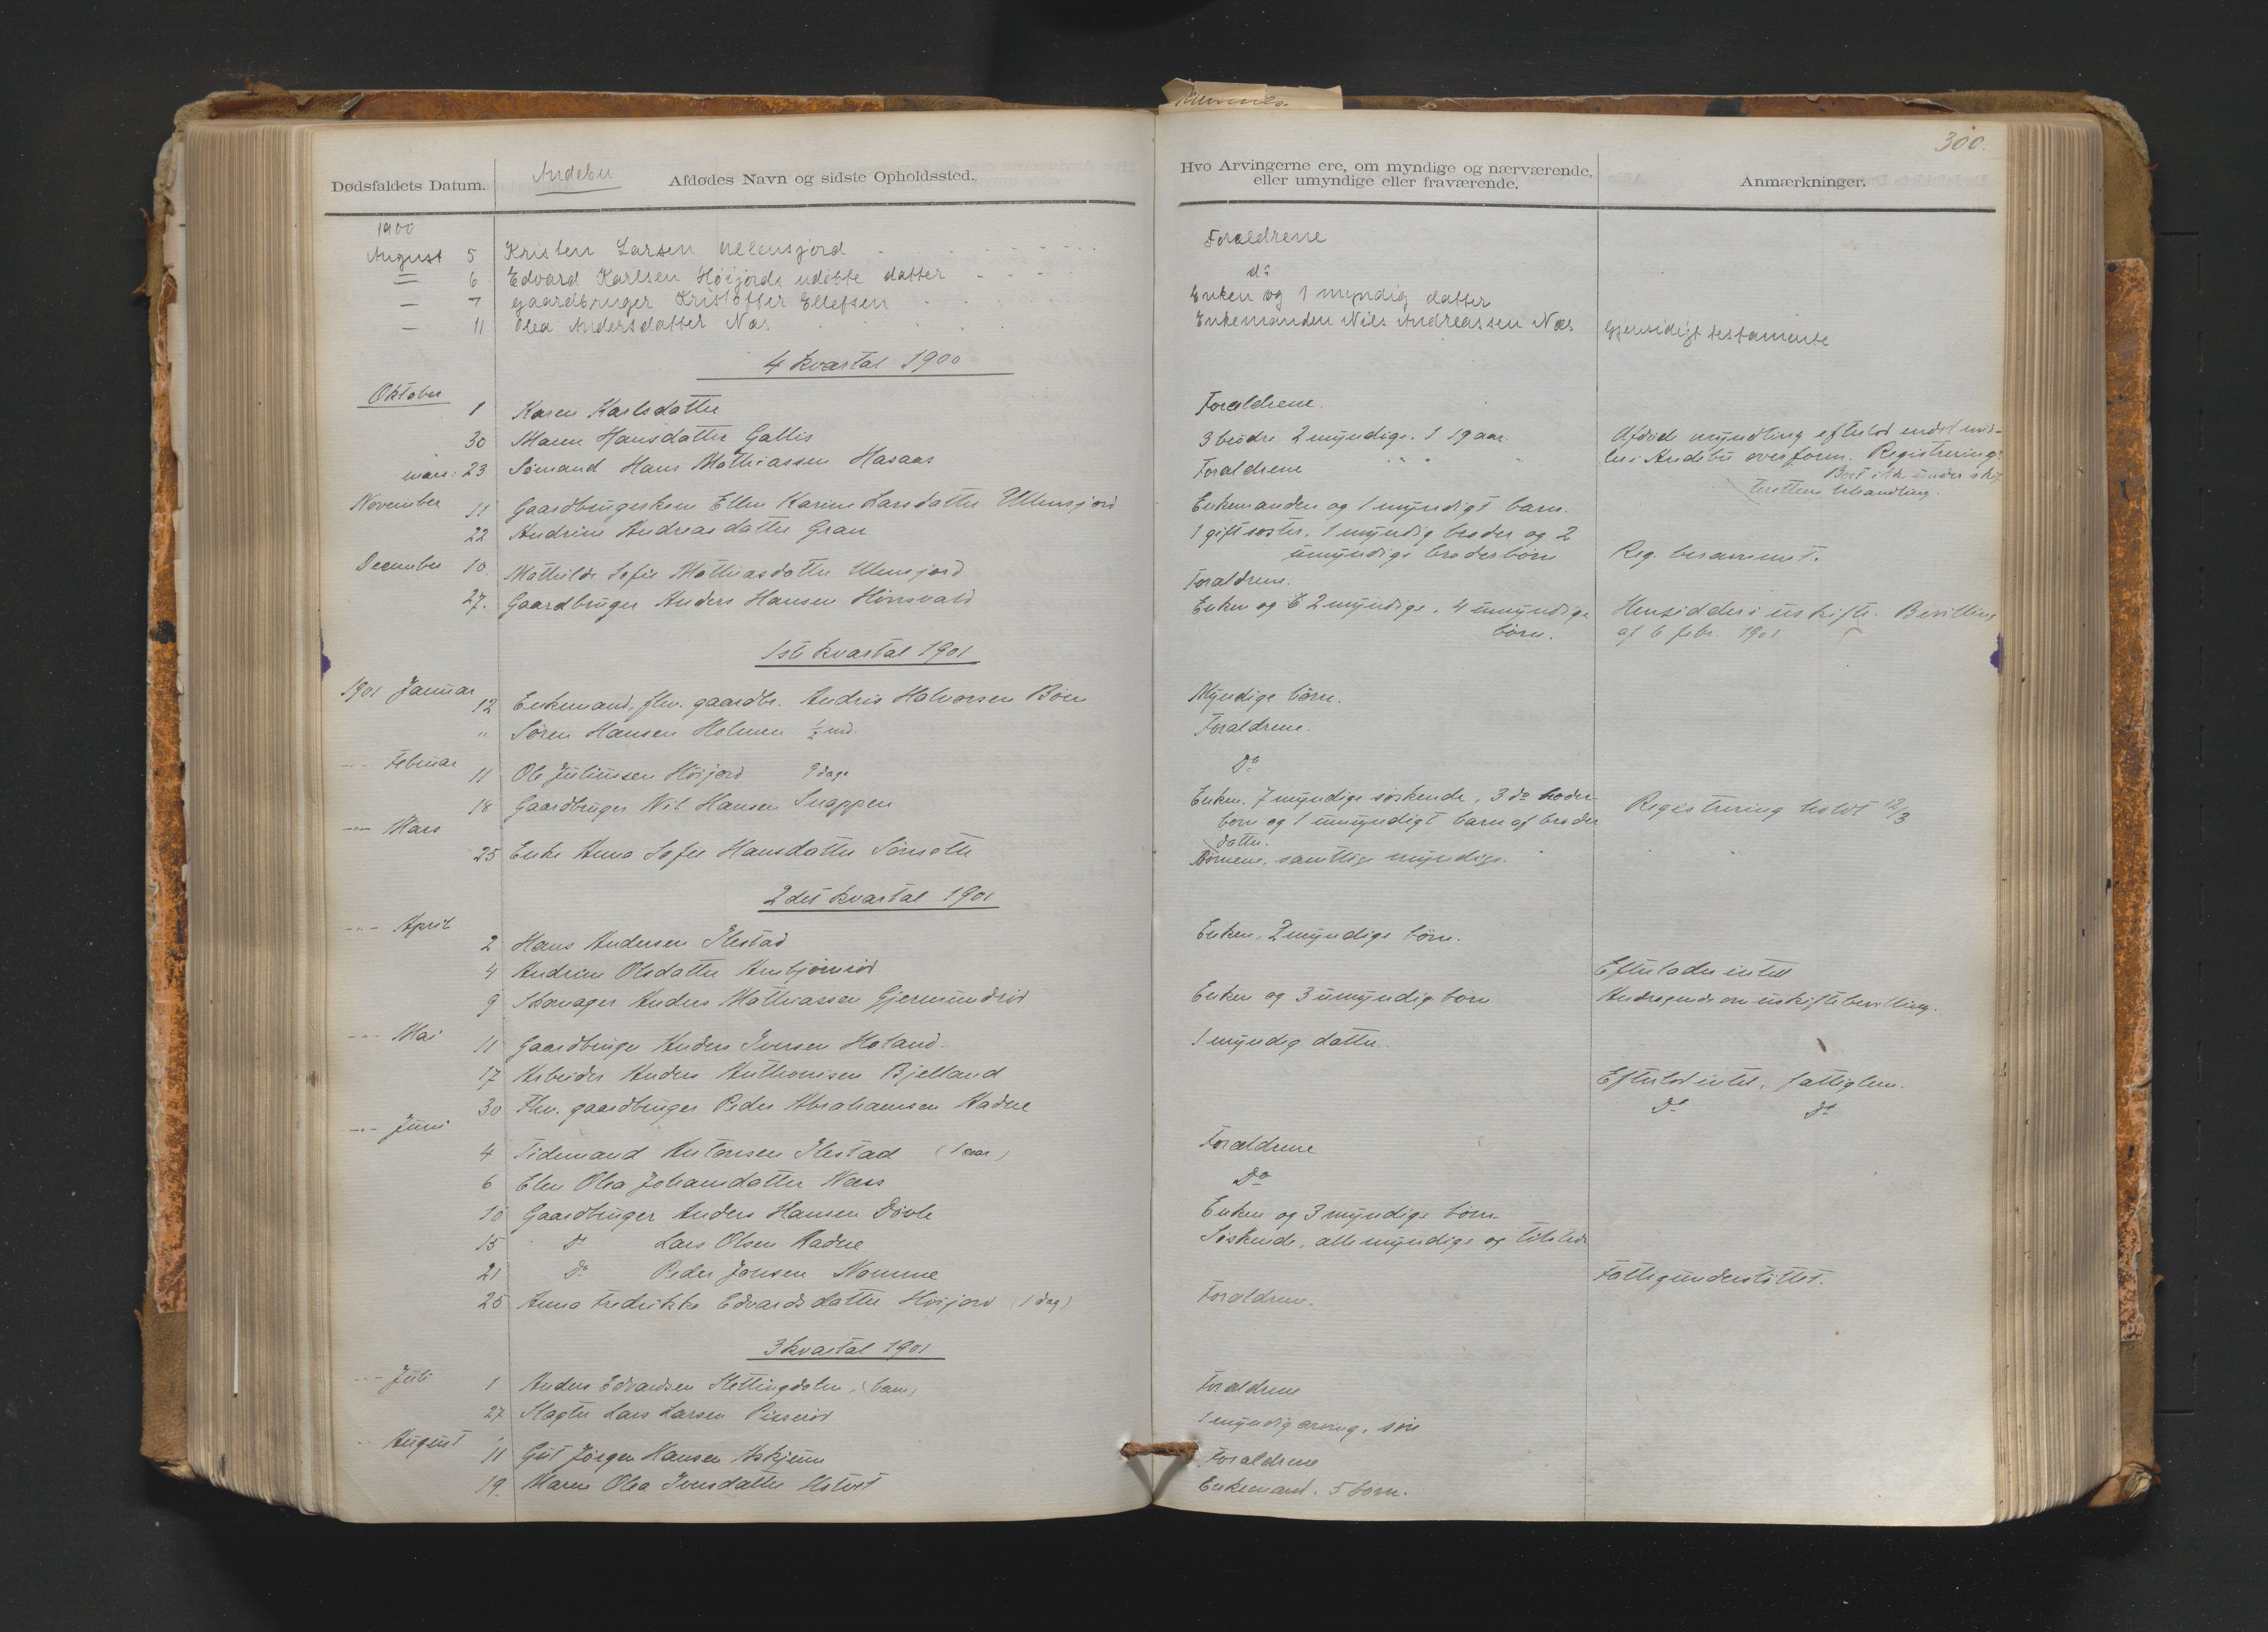 300.
Dødsfaldets Datum.
Andebu
Afdødes Navn og sidste Opholdssted.
Hvo Arvingerne ere, om myndige og nærværende, eller umyndige eller fraværende.
Anmærkninger.
1900
August 5 Kristen Larsen Ullensjord Forældrene
— 6 Edvard Karlsen Høijords udøbte datter do
— 7 gaardbruger Kristoffer Ellefsen Enken og 1 myndig datter
— 11 Olea Andersdatter Næs Enkemanden Nils Andreassen Næs Gjensidigt testamente
4 kvartal 1900
Oktober 1 Karen Karlsdatter Forældrene.
30 Maren Hansdatter Gallis 3 brødre 2 myndige. 1 19 aar. Afdøde myndling efterlod
mars: 23 Sømand Hans Mathiassen Hasaas Forældrene i Andebu overform. Registrering
Bort ikke under
behandling.
November 11 Gaardbrugerkone Ellen Karine Larsdatter Ullensjord Enkemanden og 1 myndigt barn.
22 Andrine Andreasdatter Gran 1 gift søster, 1 myndig broder og 2
umyndige broderbørn Reg. berammet.
December 10 Mathilde Sofie Mathiasdatter Ulensjord Forældrene.
27. Gaardbruger Anders Hansen Enken og 2 myndige, 4 umyndige Hensidder i uskifte. Bevilling
børn. af 6 febr. 1901
1ste kvartal 1901
1901 Januar 12 Enkemand, fhv. gaardbr. Andris Halvorsen Bøen Myndige børn.
" Søren Hansen Holmen ½ md. Forældrene.
-"- Februar 11 Ole Juliussen Høijord 9 dage Do
18 Gaardbruger Nil Hansen Snappen Enken. 7 myndige søskende, 3 do broder- Registrering holdt 12/3
børn og 1 umyndigt barn af broder
datter.
-"- Mars
25 Enke Anna Sofie Hansdatter Børnene, samtlige myndige.
2det kvartal 1901
-"- April
2 Hans Andersen Ilestad Enken, 2 myndige børn.
4 Andrine Olsdatter Arnbjørnrød Efterlader intet
9 Skomager Anders Mathiassen Gjermundrød Enken og 3 umyndige børn Andragende om uskiftebevilling.
-"- Mai
11 Gaardbruger Anders Iversen Holand. 1 myndig datter.
17 Arbeider Anders Anthonisen Bjelland Efterlod intet, fattiglem.
30 Fhv. gaardbruger Peder Abrahamsen Aadne Do Do
-"- Juni
4 Tidemand Antonsen Ilestad (1 aar) Forældrene
6 Elen Olea Johansdatter Næss Do
10 Gaardbruger Anders Hansen Døvle Enken og 3 myndige børn
15 Do Lars Olsen Aadne Søskende, alle myndige og tilstede
21 Do Peder Jonsen Nomme Fattigunderstøttet.
25 Anna Fredrikke Edvardsdatter Høijord (1 dag) Forældrene.
3 kvartal 1901
-"- Juli 1 Anders Edvardsen Slettingdalen, (barn) Forældrene
27 Slagter Lars Larsen 1 myndig arving, søn
August 11 Gut Jørgen Hansen Askjem Forældrene
19. Maren Olea Iversdatter Enkemand. 5 børn.